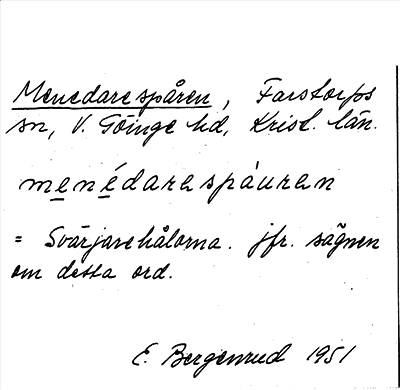 Menedarespåren, Farstorps
sn, V. Göinge hd, Krist. län.
menédaraspåuran
= Svärjarehålorna. jfr. sägnen
om detta ord.
E. Bergenrud 1951